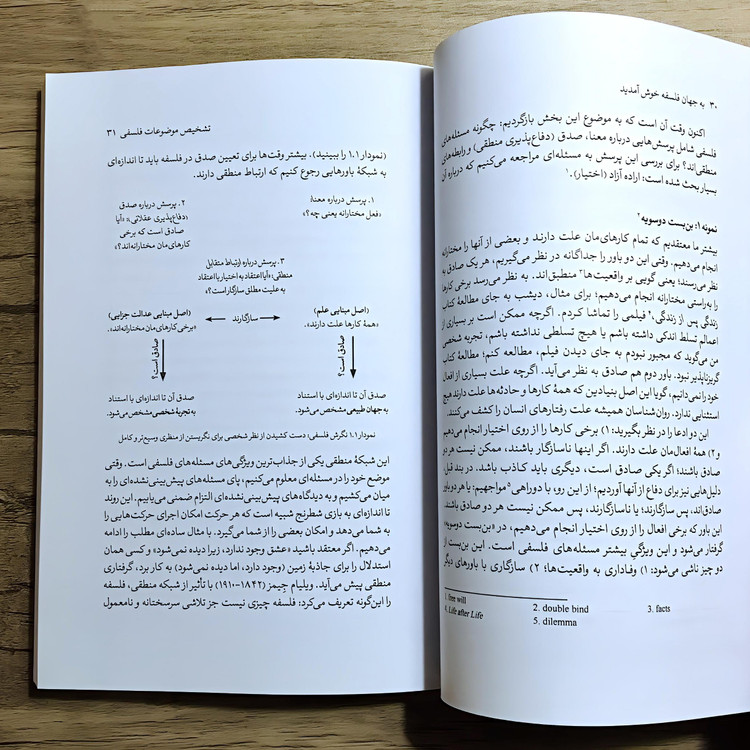 ۳۰ به جهان فلسفه خوش آمدید
اکنون وقت آن است که به موضوع این بخش بازگردیم: چگونه مسئله‌های
فلسفی شامل پرسش‌هایی درباره معنا، صدق (دفاع‌پذیری منطقی) و رابطه‌های
منطقی‌اند؟ برای بررسی این پرسش به مسئله‌ای مراجعه می‌کنیم که درباره آن
بسیار بحث شده است: اراده آزاد (اختیار).۱
نمونه ۱: بن‌بست دوسویه۲
بیشتر ما معتقدیم که تمام کارهای‌مان علت دارند و بعضی از آنها را مختارانه
انجام می‌دهیم. وقتی این دو باور را جداگانه در نظر می‌گیریم، هر یک صادق به
نظر می‌رسند؛ یعنی گویی بر واقعیت‌ها۳ منطبق‌اند. به نظر می‌رسد برخی کارها
را به‌راستی مختارانه انجام می‌دهیم؛ برای مثال، دیشب به جای مطالعهٔ کتاب
زندگی پس از زندگی،۴ فیلمی را تماشا کردم. اگرچه ممکن است بر بسیاری از
اعمالم تسلط اندکی داشته باشم یا هیچ تسلطی نداشته باشم، تجربه شخصی
من می‌گوید که مجبور نبودم به جای دیدن فیلم، مطالعه کنم؛ مطالعهٔ کتاب
گریزناپذیر نبود. باور دوم هم صادق به نظر می‌آید. اگرچه علت بسیاری از افعال
خود را نمی‌دانیم، گویا این اصل بنیادین که همهٔ کارها و حادثه‌ها علت دارند هیچ
استثنایی ندارد. روان‌شناسان همیشه علت رفتارهای انسان را کشف می‌کنند.
این دو ادعا را در نظر بگیرید: ۱) برخی کارها را از روی اختیار انجام می‌دهیم
و ۲) همهٔ افعال‌مان علت دارند. اگر اینها ناسازگار باشند، ممکن نیست هر دو
صادق باشند؛ اگر یکی صادق است، دیگری باید کاذب باشد. در بند قبل،
دلیل‌هایی نیز برای دفاع از آنها آوردیم؛ از این رو، با دوراهی۵ مواجهیم: یا هر دو باور
صادق‌اند، پس سازگارند؛ یا ناسازگارند، پس ممکن نیست هر دو صادق باشند.
این باور که برخی افعال را از روی اختیار انجام می‌دهیم، در «بن‌بست دوسویه»
گرفتار می‌شود و این ویژگی بیشتر مسئله‌های فلسفی است. این بن‌بست از
دو چیز ناشی می‌شود: ۱) وفاداری به واقعیت‌ها؛ ۲) سازگاری با باورهای دیگر
1. free will 2. double bind 3. facts
4. Life after Life 5. dilemma
تشخیص موضوعات فلسفی ۳۱
(نمودار ۱.۱ را ببینید). بیشتر وقت‌ها برای تعیین صدق در فلسفه باید تا اندازه‌ای
به شبکهٔ باورهایی رجوع کنیم که ارتباط منطقی دارند.
۱. پرسش درباره معنا:
«فعل مختارانه یعنی چه؟»
۲. پرسش درباره صدق
(دفاع‌پذیری عقلانی): «آیا
صادق است که برخی
کارهای‌مان مختارانه‌اند؟»
۳. پرسش درباره (ارتباط متقابل
منطقی: «آیا اعتقاد به اختیار با اعتقاد
به علیت مطلق سازگار است؟»
(اصل مبنایی علم)
«همهٔ کارها علت دارند».
سازگارند
(اصل مبنایی عدالت جزایی)
«برخی کارهای مان مختارانه‌اند».
صادق است؟
صادق است؟
صدق آن تا اندازه‌ای با استناد
به جهان طبیعی مشخص می‌شود.
صدق آن تا اندازه‌ای با استناد
به تجربهٔ شخصی مشخص می‌شود.
نمودار ۱.۱ نگرش فلسفی: دست کشیدن از نظر شخصی برای نگریستن از منظری وسیع‌تر و کامل
این شبکهٔ منطقی یکی از جذاب‌ترین ویژگی‌های مسئله‌های فلسفی است. وقتی
موضع خود را در مسئله‌ای معلوم می‌کنیم، پای مسئله‌های پیش‌بینی‌نشده‌ای را به
میان می‌کشیم و به دیدگاه‌های پیش‌بینی‌نشده‌ای التزام ضمنی می‌یابیم. این روند
تا اندازه‌ای به بازی شطرنج شبیه است که هر حرکت امکان اجرای حرکت‌هایی را
به شما می‌دهد و امکان بعضی را از شما می‌گیرد. با مثال ساده‌ای مطلب را ادامه
می‌دهیم. اگر معتقد باشید «عشق وجود ندارد، زیرا دیده نمی‌شود» و کسی همان
استدلال را برای جاذبهٔ زمین (وجود دارد، اما دیده نمی‌شود) به کار برد، گرفتاری
منطقی پیش می‌آید. ویلیام جیمز (۱۸۴۲-۱۹۱۰) با تأثیر از شبکه منطقی، فلسفه
را این‌گونه تعریف می‌کرد: فلسفه چیزی نیست جز تلاشی سرسختانه و نامعمول